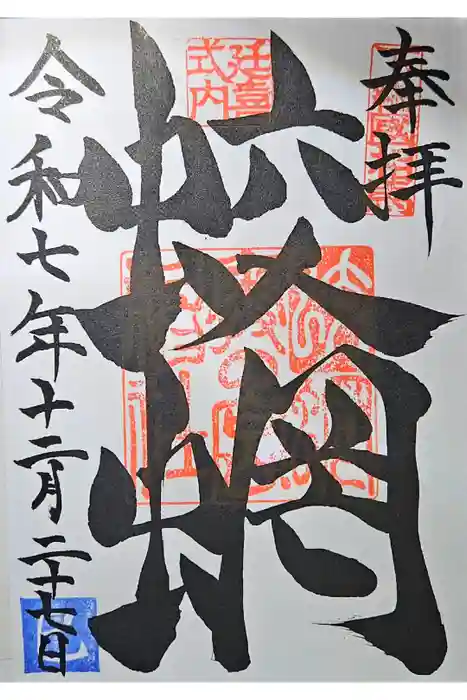 奉拝
延喜
式内
蛟蝄
令和七年十二月二十七日
巳